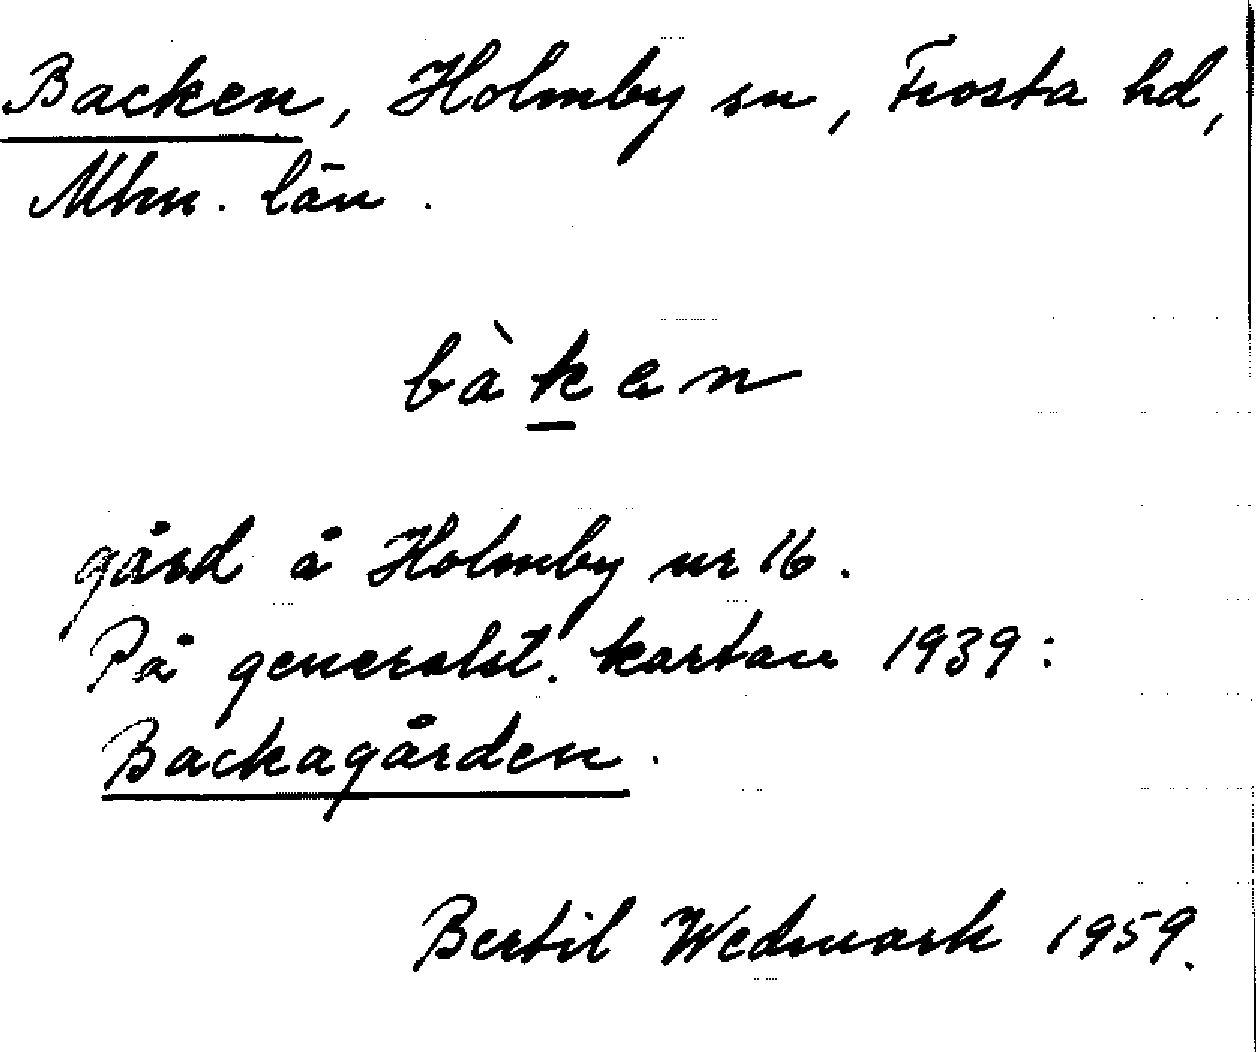 Backen, Holmby sn, Frosta hd,
Mhn. län.
bàken
gård å Holmby nr 16.
På generalst. kartan 1939:
Backagården.
Bertil Wedmark 1959.